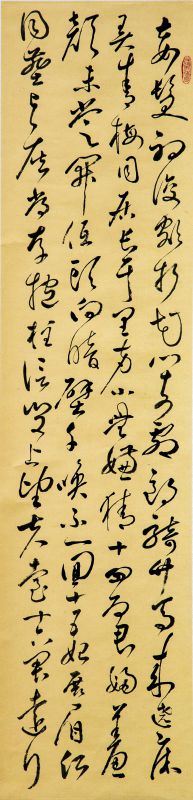 妾髮初覆額折花門前劇郎騎竹馬來遶床
弄青梅同居長干里兩小無嫌猜十四為君婦羞
顏未嘗開低頭向暗壁千喚不一回十五始展眉願
同塵與灰常存抱柱信豈上望夫臺十六君遠行